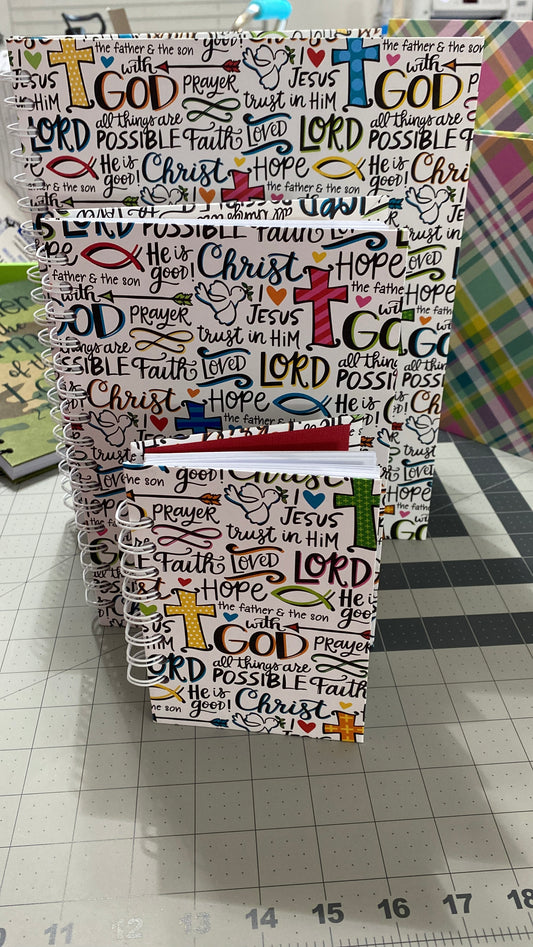 the father & the son
good!
I
JESUS
with
GOD
PRAYER
trust in HiM
LORD
all things are
POSSIBLE
Faith
LOVED
LORD
all things are
POSSIBLE
Faith
He is
good!
Christ
HOPE
He is
good!
the father & the son
the father & the son
with
GOD
LORD
POSSIBLE
Faith
He is
good!
Christ
HOPE
father & the son
with
PRAYER
I
JESUS
trust in HiM
the father
Faith
LOVED
LORD
all things
Christ
HOPE
the father & the son
He is
trust in
HOPE
good!
Christ
PRAYER
I
JESUS
trust in HiM
Faith
LOVED
LORD
HOPE
the father & the son
He is
good!
with
GOD
PRAYER
all things are
POSSIBLE
Faith
the son
He is
good!
Christ
I
11
12
13
14
15
16
17
18